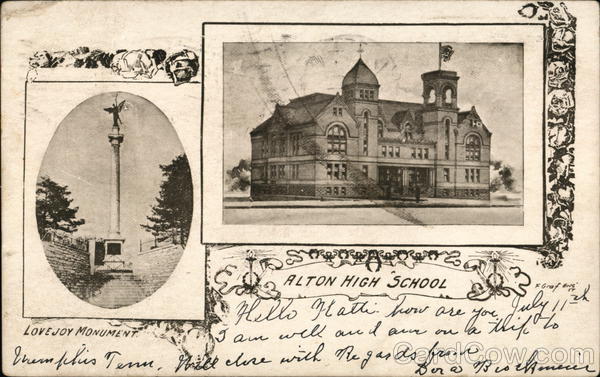 ALTON HIGH SCHOOL
LOVEJOY MONUMENT.
Hello Hatti how are you, July 11th
I am well and am on a trip to
Memphis Tenn. Will close with Regards from
Dora
CardCow.com